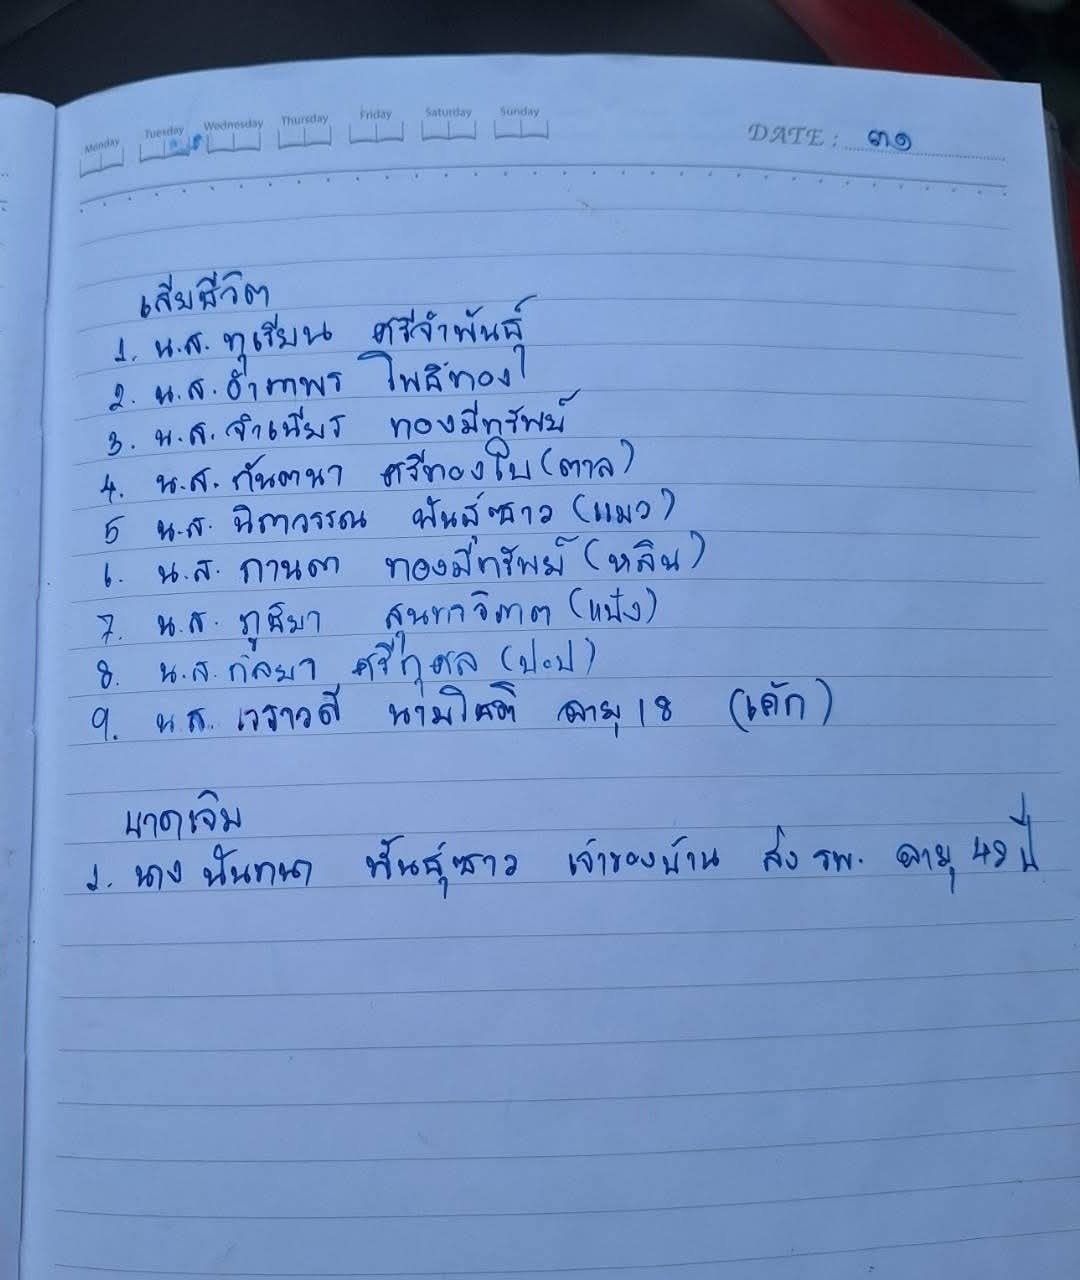 Monday Tuesday Wednesday Thursday Friday Saturday Sunday
DATE : ๓๑
เสียชีวิต
1. น.ส. ทุเรียน ศรีจำพันธุ์
2. น.ส. อำภาพร โพธิ์ทอง
3. น.ส. จำเนียร ทองมีทรัพย์
4. น.ส. กันตนา ศรีทองใบ (ตาล)
5 น.ส. นิภาวรรณ พันธุ์ซาว (แมว)
6. น.ส. กานดา ทองมีทรัพย์ (หลิน)
7. น.ส. ภูธิมา (แป้ง)
8. น.ส. กัลยา ศรีกุศล (ปะป)
9. น.ส. เวราวดี นามโชติ อายุ 18 (เค้ก)
บาดเจ็บ
1. นาง นันทนา พันธุ์ซาว เจ้าของบ้าน ส่ง รพ. อายุ 49 ปี